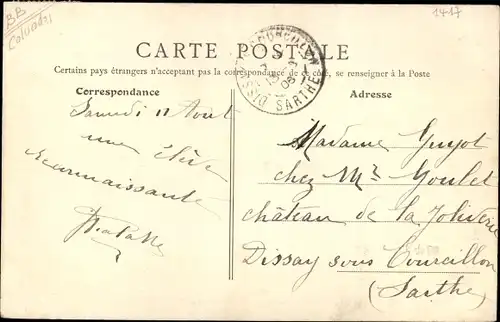 BB
Calvados
1417
CARTE POSTALE
Certains pays étrangers n'acceptant pas la correspondance de ce côté, se renseigner à la Poste
Correspondance
Adresse
SARTHE
Samedi 11 Aout
une élève
reconnaissante
Madame Guyot
chez Mr Goulet
château de la Joliverie
Dissay sous Courcillon
(Sarthe)